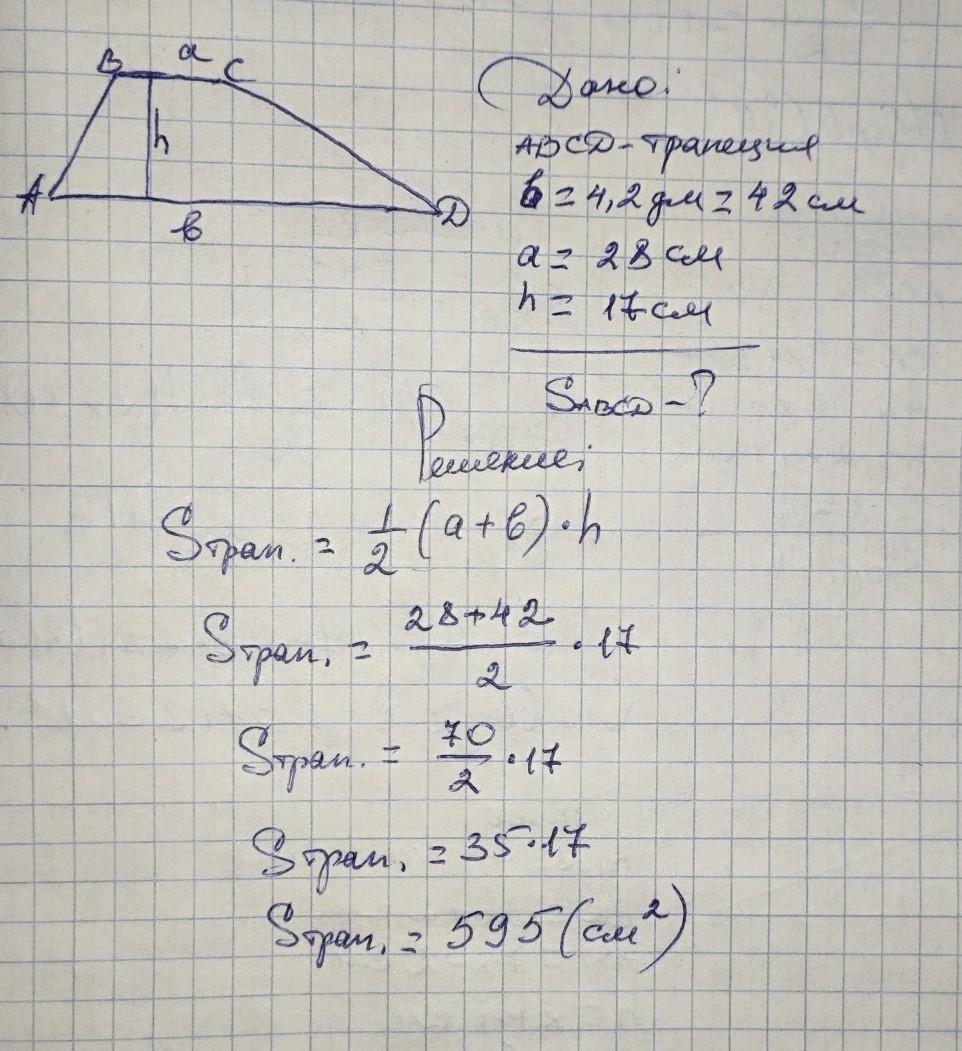 B a C
h
A D
в
Дано:
ABCD - трапеция
в = 4,2 дм = 42 см
a = 28 см
h = 17 см
SABCD - ?
Решение:
Sтрап. = 1/2 (a + в) · h
Sтрап. = 28+42/2 · 17
Sтрап. = 70/2 · 17
Sтрап. = 35 · 17
Sтрап. = 595 (см²)